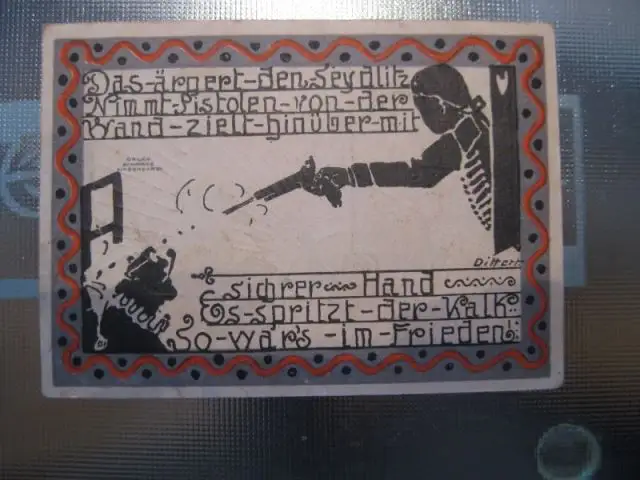 Das-ärgert-den-Seydlitz
Nimmt-Pistolen-von-der
Wand-zielt-hinüber-mit
DRUCK
Dittert
sichrer Hand
Es-spritzt-der-Kalk
So-wär's-im-Frieden!